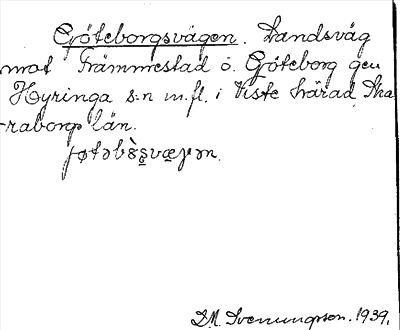 Göteborgsvägen. Landsväg
mot Främmestad o. Göteborg gen
Hyringa s:n m.fl. i Viste härad, Ska
raborgs län.
D.M. Svenungsson. 1939.